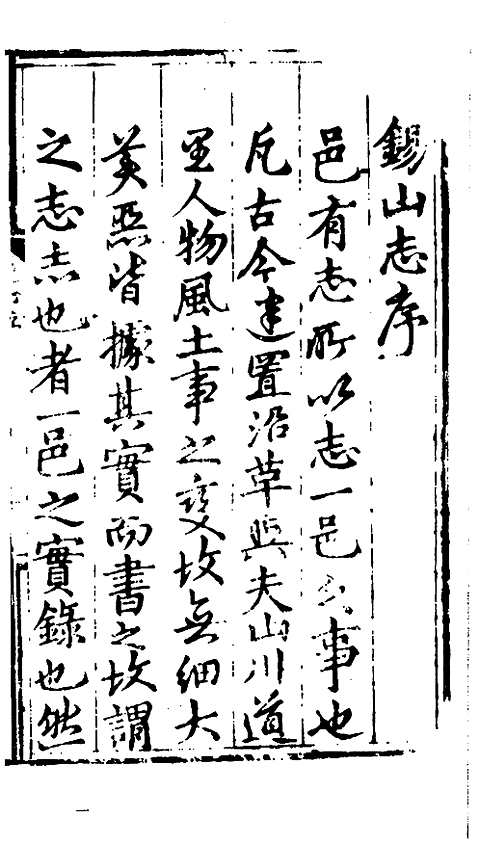 錫山志序
邑有志所以志一邑之事也
凡古今建置沿革與夫山川道
里人物風土事之變故無細大
美惡皆據其實而書之故謂
之志志也者一邑之實錄也然
一